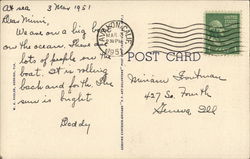 At sea 3 Mar 1951
Dear Mimi,
We are on a big boat
on the ocean. There are
lots of people on the
boat. It is rolling
back and forth. The
sun is bright
Daddy
AVALON, CALIF.
MAR 3
PM
1951
POST CARD
Miriam
427 So. Fourth
Geneva, Ill